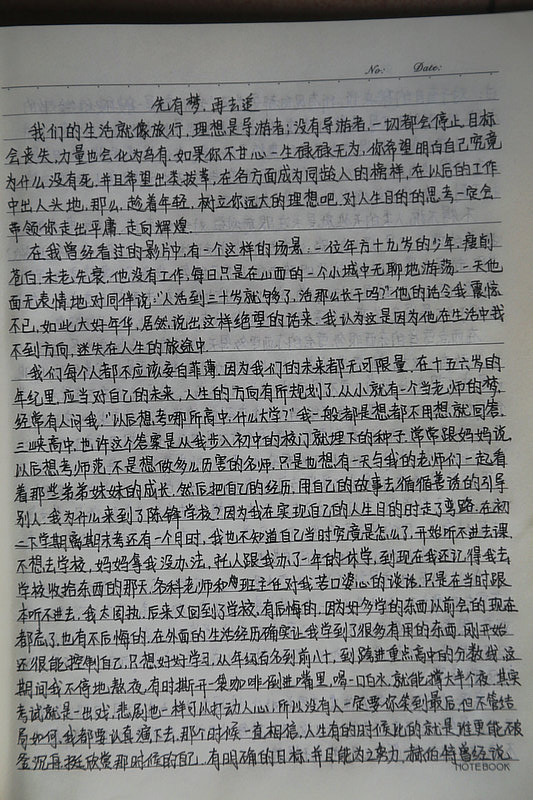 No:    Date:
先有梦，再去追
我们的生活就像旅行，理想是导游者；没有导游者，一切都会停止，目标
会丧失，力量也会化为乌有。如果你不甘心一生碌碌无为，你希望明白自己究竟
为什么没有死，并且希望出类拔萃，在各方面成为同龄人的榜样，在以后的工作
中出人头地，那么，趁着年轻，树立你远大的理想吧，对人生目的的思考一定会
带领你走出平庸，走向辉煌。
在我曾经看过的影片中，有一个这样的场景：一位年方十九岁的少年，瘦削
苍白，未老先衰，他没有工作，每日只是在山西的一个小城中无聊地游荡，一天他
面无表情地对同伴说："人活到三十岁就够了，活那么长干吗？"他的话令我震惊
不已，如此大好年华，居然说出这样绝望的话来，我认为这是因为他在生活中找
不到方向，迷失在人生的旅途中。
我们每个人都不应该妄自菲薄，因为我们的未来都无可限量，在十五六岁的
年纪里，应当对自己的未来，人生的方向有所规划了，从小就有一个当老师的梦，
经常有人问我："以后想考哪所高中，什么大学？"我一般都是想都不用想就回答，
三峡高中，也许这个答案是从我步入初中的校门就埋下的种子，常常跟妈妈说，
以后想考师范，不是想做多么厉害的名师，只是也想有一天与我的老师们一起看
着那些弟弟妹妹的成长，然后把自己的经历，用自己的故事去循循善诱的引导
别人，我为什么来到了陈锋学校？因为我在实现自己的人生目的时走了弯路，在初
二下学期离期末考还有一个月时，我也不知道自己当时究竟是怎么了，开始听不进去课，
不想去学校，妈妈拿我没办法，托人跟我办了一年的休学，到现在我还记得我去
学校收拾东西的那天，各科老师和班主任对我苦口婆心的谈话，只是在当时跟
本听不进去，我太固执，后来又回到了学校，有后悔的，因为好多学的东西以前会的现在
都忘了，也有不后悔的，在外面的生活经历确实让我学到了很多有用的东西，刚开始
还很能控制自己，只想好好学习，从年级百名到前八十，到踏进重点高中的分数线，这
期间我不停地熬夜，有时撕开一袋咖啡倒进嘴里，喝一口白水，就能撑大半个夜，其实
考试就是一出戏，悲剧也一样可以打动人心，所以没有人一定要你笑到最后，但不管结
局如何，我都要认真演下去，那个时候一直相信，人生有的时候比的就是谁更能不破
釜沉舟，挺欣赏那时候的自己，有明确的目标，并且能为之努力，赫伯特曾经说
NOTEBOOK